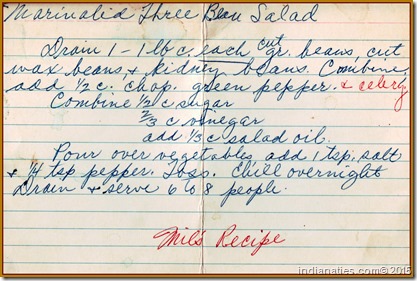 Marinated Three Bean Salad
Drain 1 - 1 lb c. each cut gr. beans, cut
wax beans, & kidney beans. Combine
add 1/2 c. chop. green pepper. & celery
Combine 1/2 c sugar
2/3 c vinegar
add 1/3 c salad oil
Pour over vegetables, add 1 tsp. salt
& 1/4 tsp pepper. Toss. Chill overnight
Drain & serve 6 to 8 people.
Mil's Recipe
indianaties.com©2015